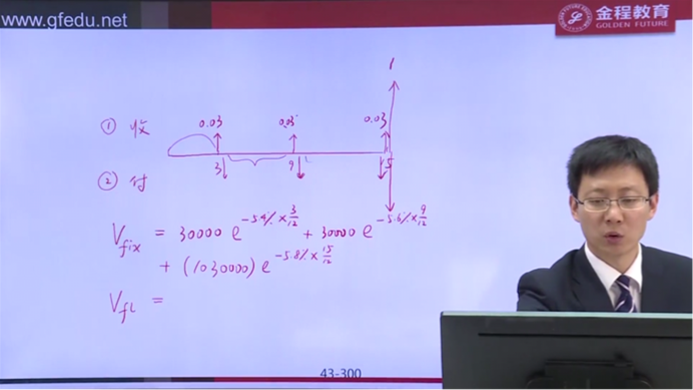 www.gfedu.net
金程教育
GOLDEN FUTURE
1
① 收 0.03 0.03 0.03
3 9 15
② 付
V_fix = 30000 e^{-5.4% × 3/12} + 30000 e^{-5.6% × 9/12}
+ (1030000) e^{-5.8% × 15/12}
V_fl =
43-300